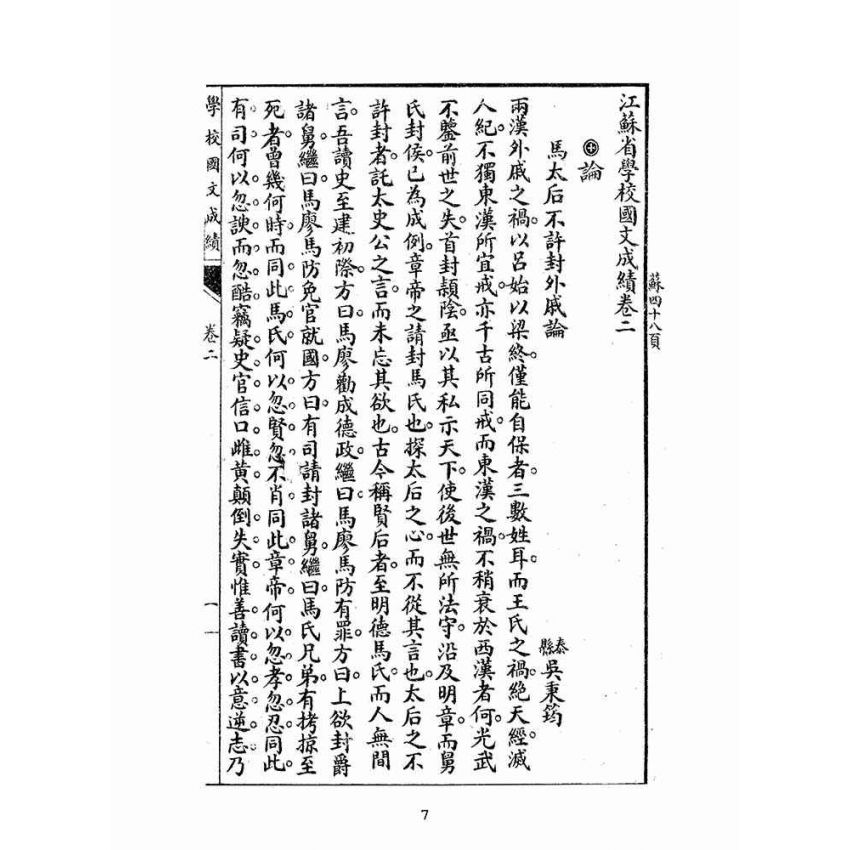 蘇四十八頁
江蘇省學校國文成績卷二
㊉論
馬太后不許封外戚論
泰縣吳秉筠
兩漢外戚之禍。以呂始以梁終。僅能自保者。三數姓耳。而王氏之禍。絕天經滅
人紀。不獨東漢所宜戒。亦千古所同戒。而東漢之禍。不稍衰於西漢者。何。光武
不鑒前世之失。首封潁陰。亟以其私示天下。使後世無所法守。沿及明章。而舅
氏封侯。已為成例。章帝之請封馬氏也。探太后之心。而不從其言也。太后之不
許封者。託太史公之言。而未忘其欲也。古今稱賢后者。至明德馬氏。而人無間
言。吾讀史至建初際。方曰。馬廖勸成德政。繼曰。馬廖馬防有罪。方曰。上欲封爵
諸舅。繼曰。馬廖馬防免官就國。方曰。有司請封諸舅。繼曰。馬氏兄弟。有拷掠至
死者。曾幾何時。而同此馬氏。何以忽賢忽不肖。同此章帝。何以忽孝忽忍。同此
有司。何以忽諛而忽酷。竊疑史官信口雌黃。顛倒失實。惟善讀書。以意逆志。乃
學校國文成績
卷二
一
7